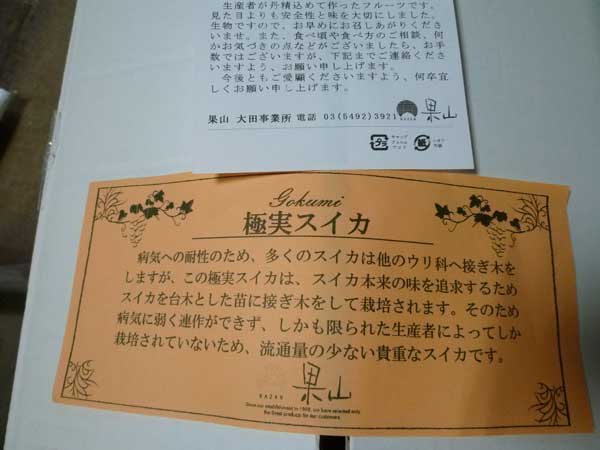 生産者が丹精込めて作ったフルーツです。
見た目よりも安全性と味を大切にしました。
生物ですので、お早めにお召しあがりくださ
いませ。また、食べ頃や食べ方のご相談、何
かお気づきの点などがございましたら、お手
数ではございますが、下記までご連絡くださ
いますよう、お願い申し上げます。
今後ともご愛顧くださいますよう、何卒宜し
くお願い申し上げます。
果山 大田事業所 電話 03(5492)3921
KAZAN
果山
プラ
紙
Gokumi
極実スイカ
病気への耐性のため、多くのスイカは他のウリ科へ接ぎ木を
しますが、この極実スイカは、スイカ本来の味を追求するため
スイカを台木とした苗に接ぎ木をして栽培されます。そのため
病気に弱く連作ができず、しかも限られた生産者によってしか
栽培されていないため、流通量の少ない貴重なスイカです。
KAZAN
果山
Since our establishment in 1968, we have selected only
the finest products for our customers.